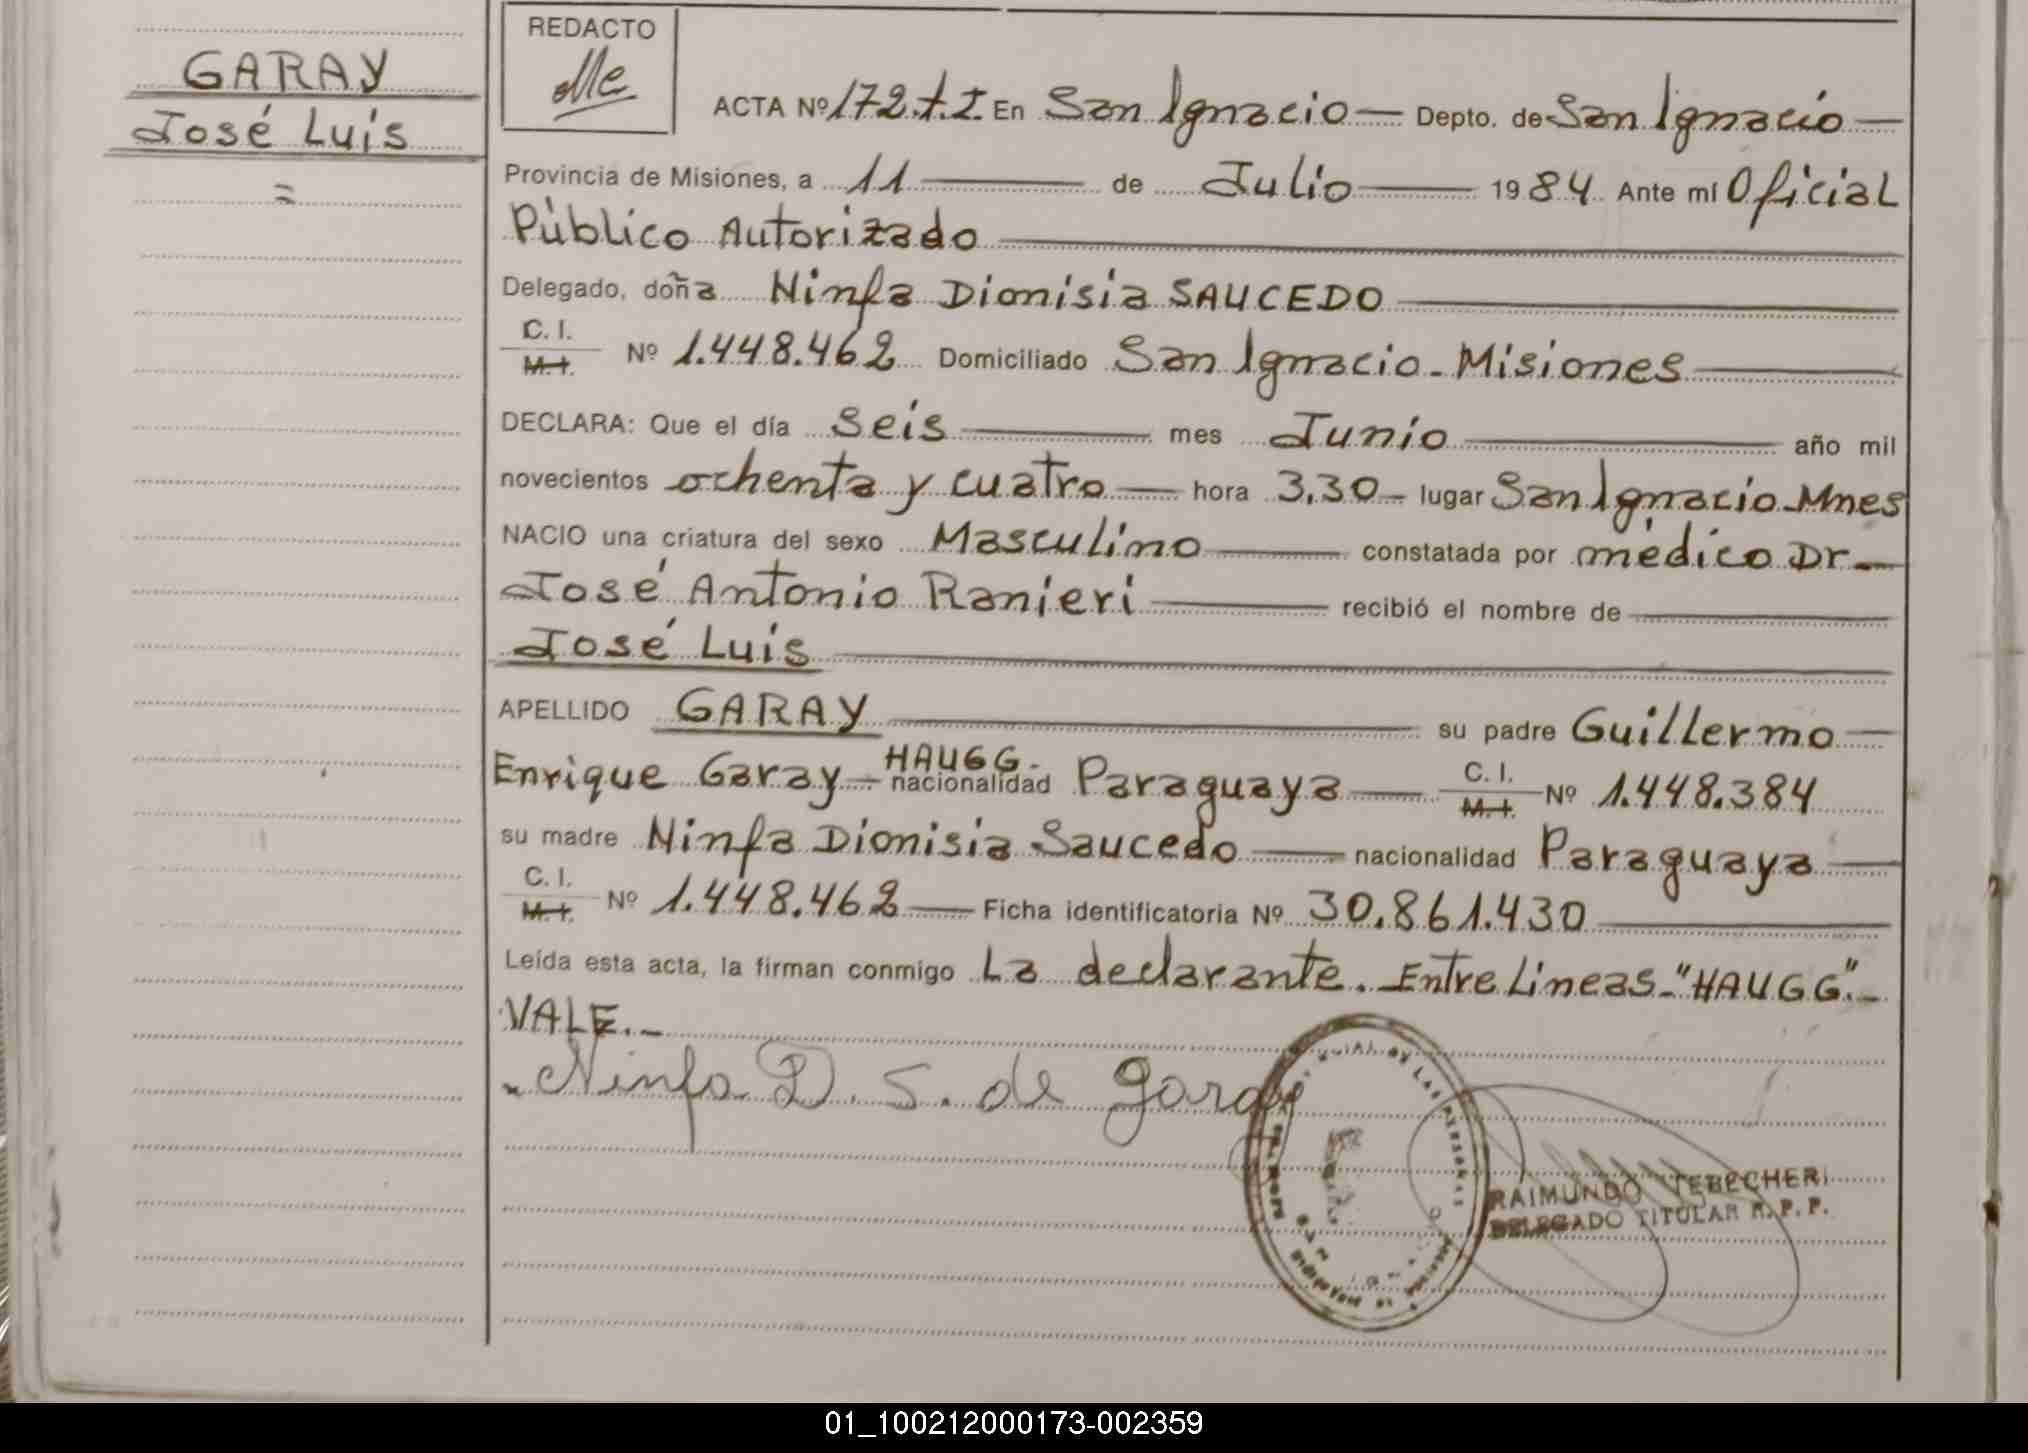 GARAY
José Luis
=
REDACTO
ACTA Nº 172.t.I. En San Ignacio — Depto. de San Ignacio —
Provincia de Misiones, a 11 — de Julio — 1984. Ante mí Oficial
Público Autorizado —
Delegado, doña Ninfa Dionisia SAUCEDO —
C. I.
M. I. Nº 1.448.462 Domiciliado San Ignacio - Misiones —
DECLARA: Que el día Seis — mes Junio — año mil
novecientos ochenta y cuatro — hora 3,30 — lugar San Ignacio - Mnes
NACIO una criatura del sexo Masculino — constatada por médico Dr —
José Antonio Ranieri — recibió el nombre de —
José Luis —
APELLIDO GARAY — su padre Guillermo —
HAUGG.
Enrique Garay — nacionalidad Paraguaya — C. I. M. I. Nº 1.448.384
su madre Ninfa Dionisia Saucedo — nacionalidad Paraguaya —
C. I.
M. I. Nº 1.448.462 — Ficha identificatoria Nº 30.861.430 —
Leída esta acta, la firman conmigo La declarante. Entre Lineas - "HAUGG".-
VALE.-
Ninfa D. S. de Garay
RAIMUNDO TEBECHERI
DELEGADO TITULAR R. P. P.
01_100212000173-002359